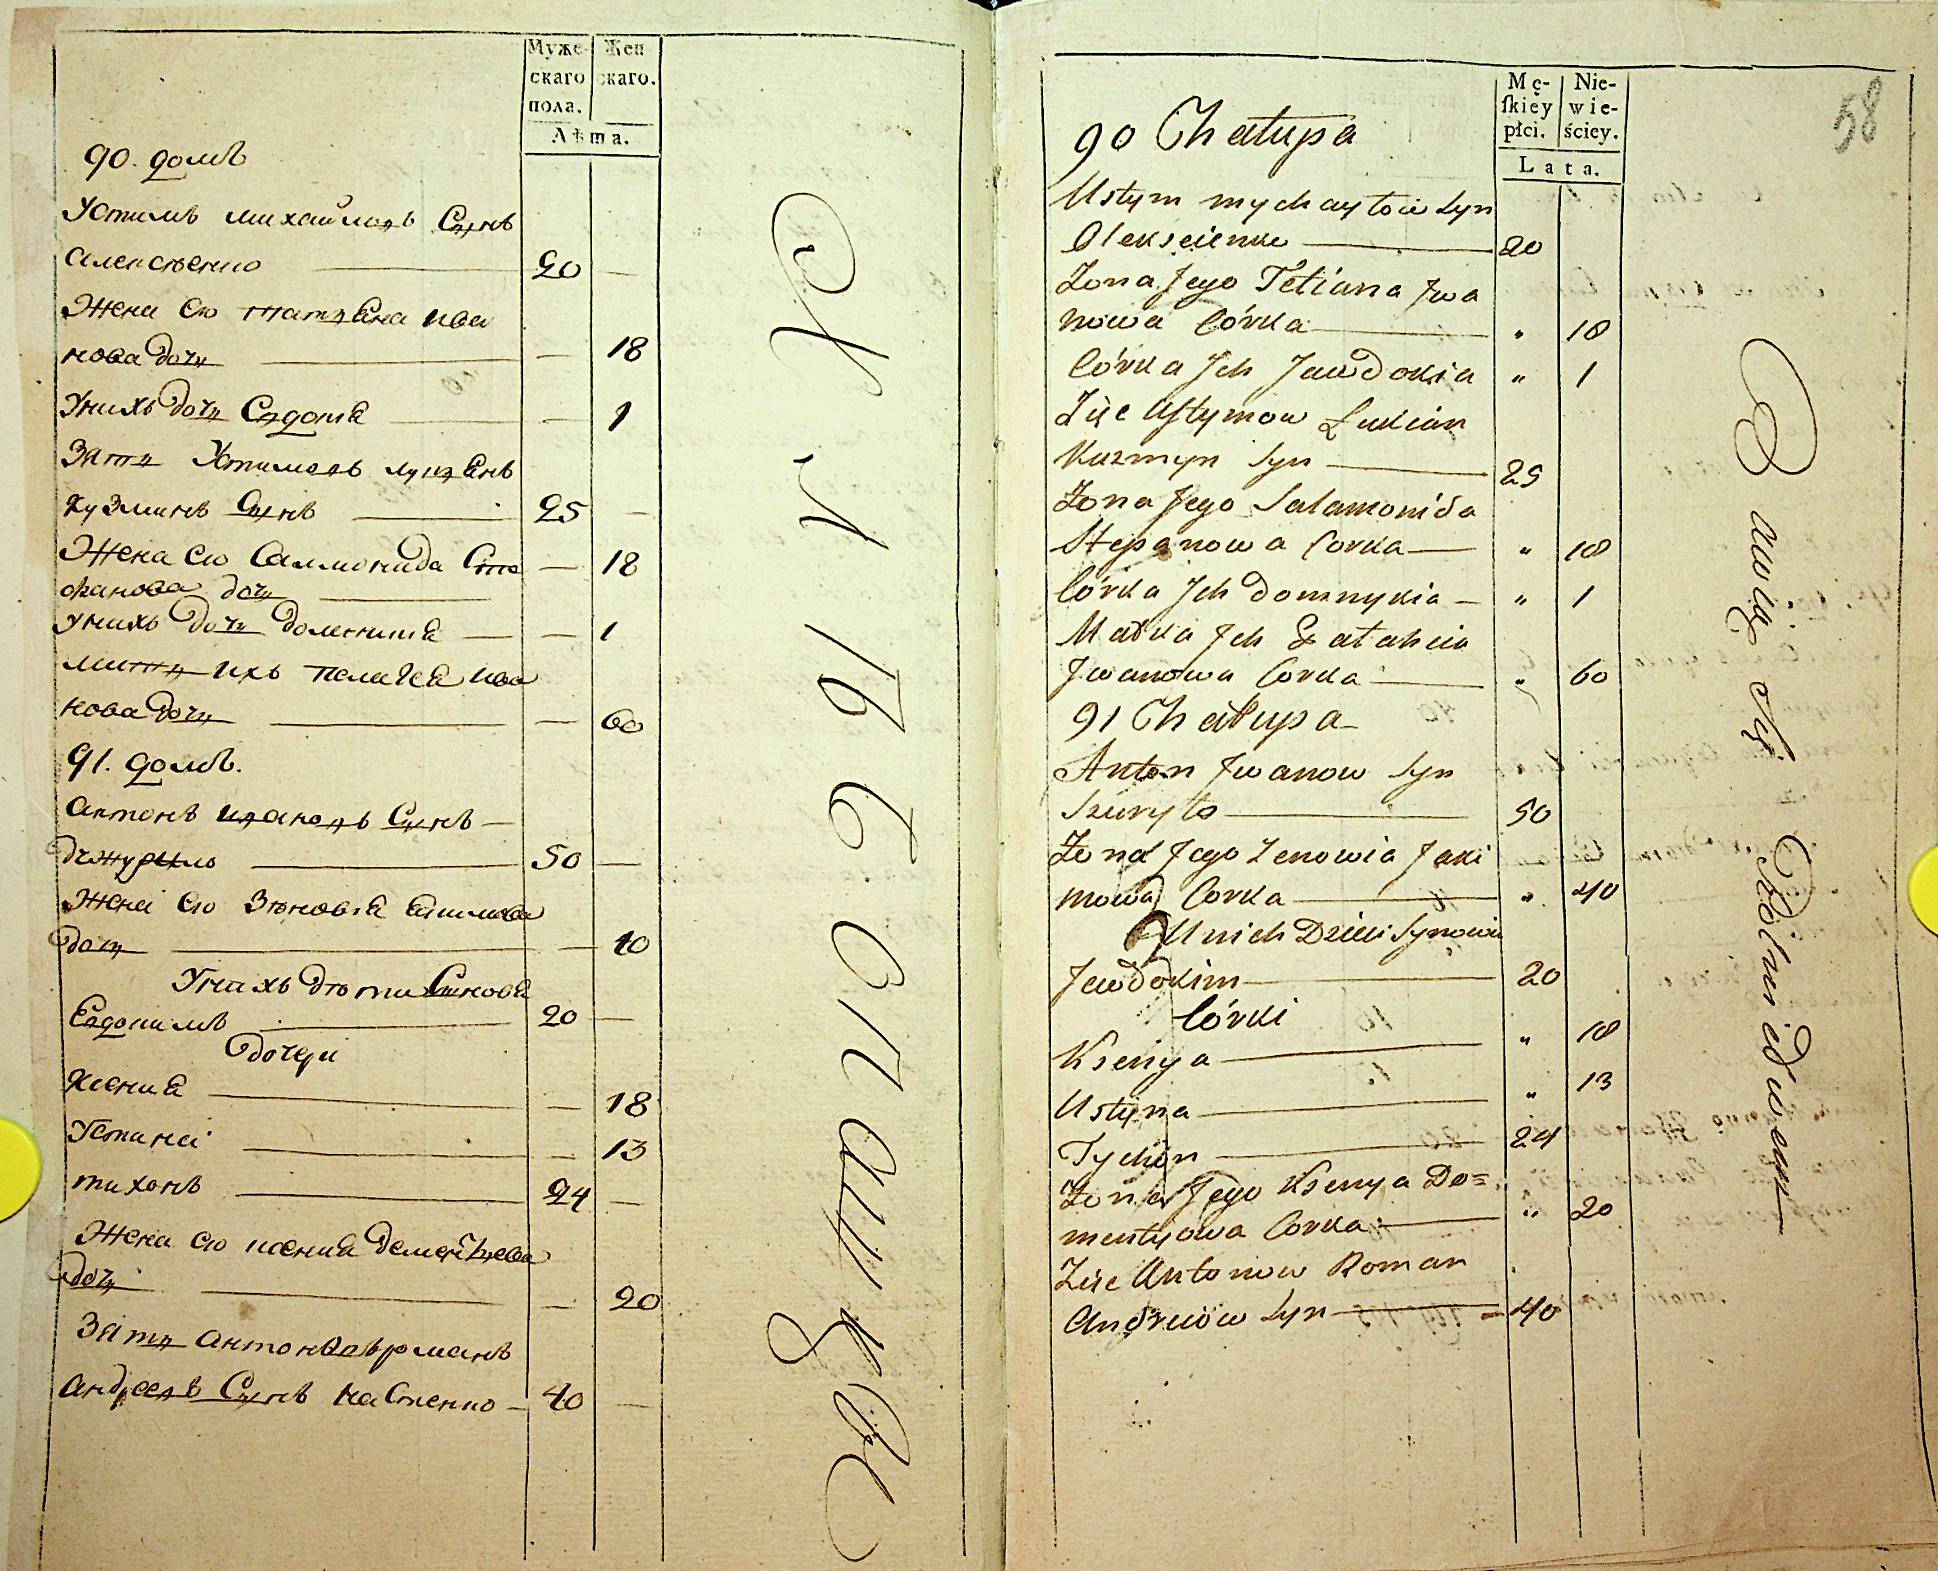 Муже-
скаго
пола.
Жен
скаго.
Лѣта.
90. домъ
Устимъ михайловъ Сынъ
алексѣенко 20
Жена его татяна ива
нова дочь 18
Унихъ дочь Евдокія 1
Зять Устимовъ лукянъ
кузминъ Сынъ 25
Жена его Саламонида Сте
фанова дочь 18
Унихъ дочь доминикія 1
мать ихъ пелагея ива
нова дочь 60
91. домъ.
антонъ ивановъ Сынъ
50
Жена его Зѣновія якимова
дочь 40
Унихъ дѣти Синовя
Евдокимъ 20
дочери
Ксения 18
Устина 13
тихонъ 24
Жена его ксения дементьева
дочь 20
Зять антоновъ романъ
андреевъ Сынъ 40
Męs-
kiey
płci.
Nie-
wie-
ściey.
Lata.
58
90 Chałupa
Ustym mychayłow Syn
Olekseienko 20
Zona Jego Tetiana Jwa
nowa Córka " 18
Córka Jch Jawdokia " 1
Zięć Ustymow Łukian
Kuzmyn Syn 25
Żona Jego Salamonida
Stepanowa Corka " 18
Córka Jch Domnykia " 1
Matka Jch Pałahia
Jwanowa Corka " 60
91 Chałupa
Anton Jwanow Syn
50
Żona Jego Zenowia Jaki
mowa Corka " 40
U nich Dzieci Synowie
Jewdokim 20
Córki
Ksenya " 18
Ustyna " 13
Tychon 24
Żona Jego Ksenya De=
mentyowa Corka " 20
Zięć Antonow Roman
Andreiow Syn 40